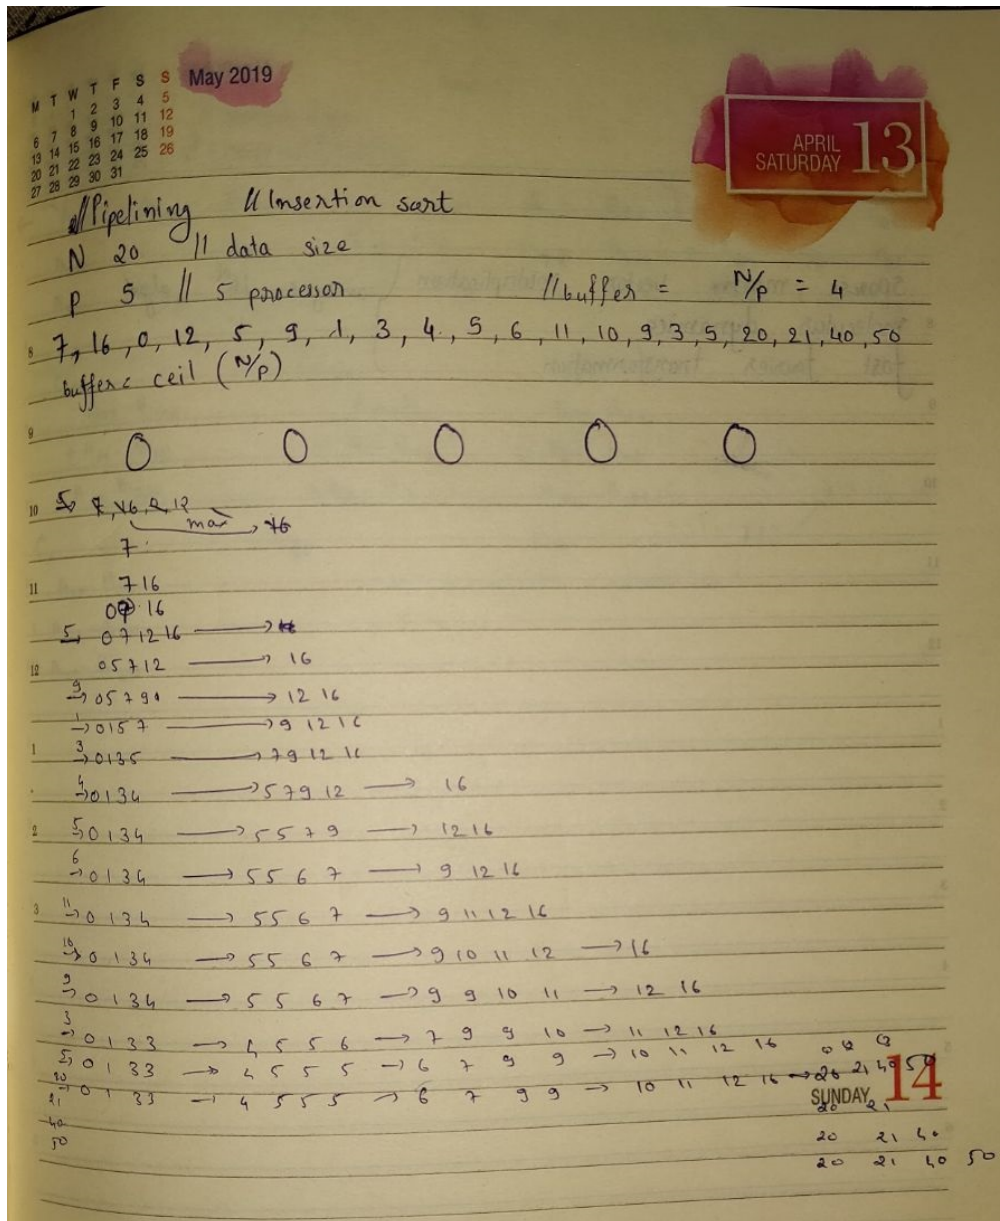 May 2019
M T W T F S S
1 2 3 4 5
6 7 8 9 10 11 12
13 14 15 16 17 18 19
20 21 22 23 24 25 26
27 28 29 30 31
APRIL
SATURDAY 13
//Pipelining // Insertion sort
N 20 // data size
P 5 // 5 processor // buffer = N/p = 4
8 7, 16, 0, 12, 5, 9, 1, 3, 4, 5, 6, 11, 10, 9, 3, 5, 20, 21, 40, 50
buffer = ceil (N/p)
9 O O O O O
10 5, 7, 16, 0, 12
max → 16
7
11 7 16
0 7 16
5, 0 7 12 16 →
12 0 5 7 12 → 16
9 → 0 5 7 9 → 12 16
1 → 0 1 5 7 → 9 12 16
1 3 → 0 1 3 5 → 7 9 12 16
4 → 0 1 3 4 → 5 7 9 12 → 16
2 5 → 0 1 3 4 → 5 5 7 9 → 12 16
6 → 0 1 3 4 → 5 5 6 7 → 9 12 16
3 11 → 0 1 3 4 → 5 5 6 7 → 9 11 12 16
10 → 0 1 3 4 → 5 5 6 7 → 9 10 11 12 → 16
9 → 0 1 3 4 → 5 5 6 7 → 9 9 10 11 → 12 16
3 → 0 1 3 3 → 4 5 5 6 → 7 9 9 10 → 11 12 16
5 → 0 1 3 3 → 4 5 5 5 → 6 7 9 9 → 10 11 12 16
20 → 0 1 3 3 → 4 5 5 5 → 6 7 9 9 → 10 11 12 16 → 20 21 40 50
SUNDAY 14
21 20 21
40 20 21 40
50 20 21 40 50